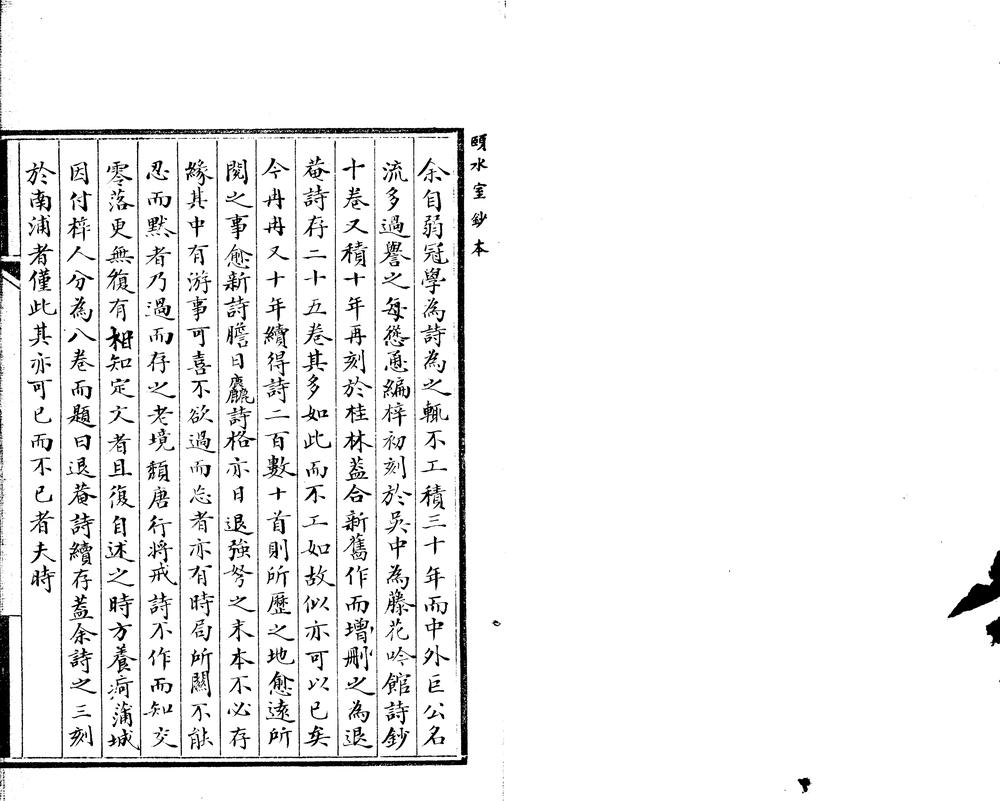 頤水室鈔本
余自弱冠學為詩為之輒不工積三十年而中外巨公名
流多過譽之每慫恿編梓初刻於吳中為藤花吟館詩鈔
十卷又積十年再刻於桂林葢合新舊作而增刪之為退
菴詩存二十五卷其多如此而不工如故似亦可以已矣
今冉冉又十年續得詩二百數十首則所歷之地愈遠所
閱之事愈新詩膽日麤詩格亦日退強弩之末本不必存
緣其中有游事可喜不欲過而忘者亦有時局所關不能
忍而默者乃過而存之老境頹唐行將戒詩不作而知交
零落更無復有相知定文者且復自述之時方養疴蒲城
因付梓人分為八卷而題曰退菴詩續存葢余詩之三刻
於南浦者僅此其亦可已而不已者夫時